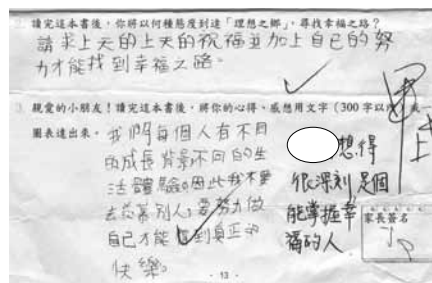 2. 讀完這本書後，你將以何種態度到達「理想之鄉」，尋找幸福之路？
請求上天的上天的祝福並加上自己的努
力才能找到幸福之路。
3. 親愛的小朋友！讀完這本書後，將你的心得、感想用文字（300字以內）或
圖表達出來。
我們每個人有不同
的成長背景不同的生
活體驗。因此我不要
去羨慕別人，要努力做
自己才能 到真正的
快樂。
想得
很深刻 是個
能掌握幸
福的人
甲上
家長簽名
- 13 -